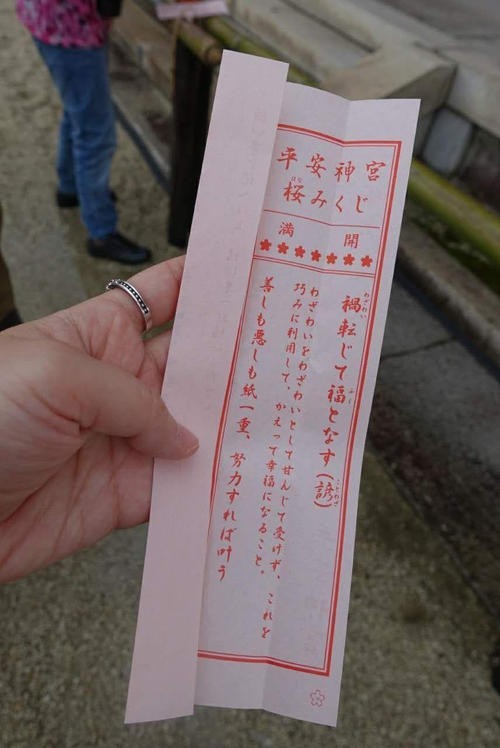 平安神宮
桜みくじ
満開
禍転じて福となす(諺)
わざわいをわざわいとして甘んじて受けず、これを
巧みに利用して、かえって幸福になること。
善しも悪しも紙一重、努力すれば叶う